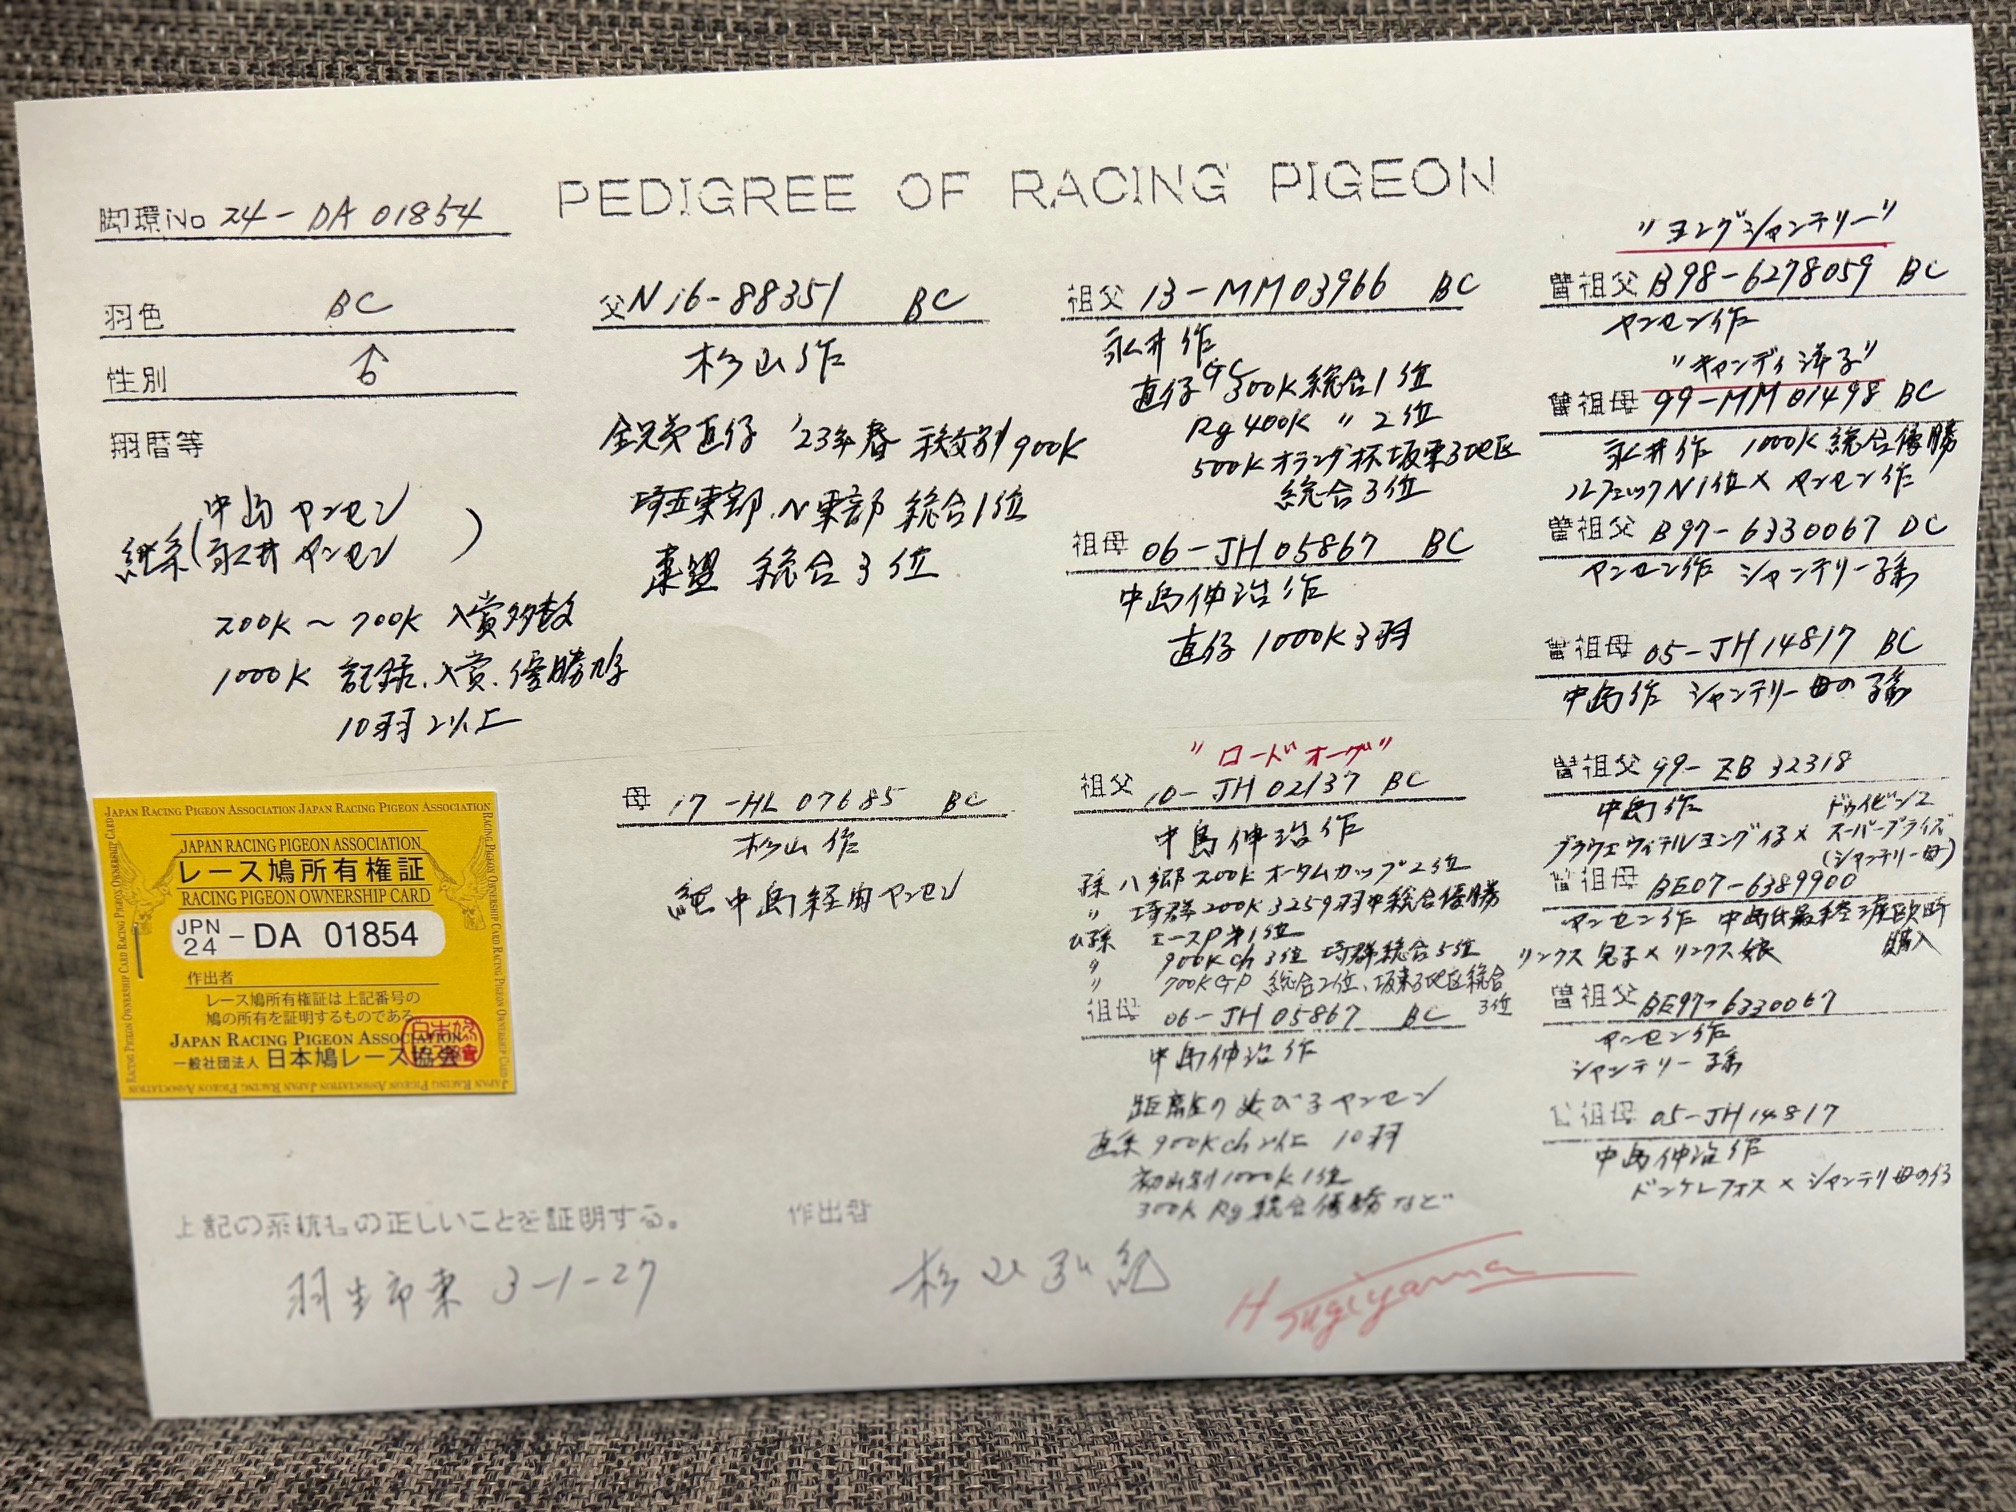 PEDIGREE OF RACING PIGEON
脚環No 24-DA 01854
羽色 BC
性別 ♂
翔歴等
継系(中島ヤンセン
永井ヤンセン)
200K～700K 入賞多数
1000K 記録、入賞、優勝鳩
10羽以上
父 N16-88351 BC
杉山作
全兄弟直仔 '23年春 900K
埼玉東部、N東部 総合1位
東盟 総合3位
母 17-HL 07685 BC
杉山作
純中島経由ヤンセン
祖父 13-MM03966 BC
永井作
直仔 GC 300K 総合1位
Rg 400K 〃 2位
500K オランダ杯坂東3地区
総合3位
祖母 06-JH 05867 BC
中島伸浩作
直仔 1000K 3羽
"ロードオーヴ"
祖父 10-JH 02137 BC
中島伸浩作
孫 八郷200K オータムカップ2位
〃 埼群200K 3259羽中総合優勝
ひ孫 エースP 第1位
〃 900K ch 3位 埼群総合5位
〃 700K GP 総合2位、坂東3地区総合
3位
祖母 06-JH 05867 BC
中島伸浩作
距離の延びるヤンセン
直系 900K ch 以上 10羽
1000K 1位
300K Rg 総合優勝など
"ヨングシャンテリー"
曽祖父 B98-6278059 BC
ヤンセン作
"キャンディ洋子"
曽祖母 99-MM 01498 BC
永井作 1000K 総合優勝
N1位 × ヤンセン作
曽祖父 B97-6330067 DC
ヤンセン作 シャンテリー孫
曽祖母 05-JH 14817 BC
中島作 シャンテリー母の孫
曽祖父 99-ZB 32318
中島作 ドゥイビンヌ
ブラウエウィテルヨング仔 × スーパープライズ
(シャンテリー母)
曽祖母 BE07-6389900
ヤンセン作 中島氏最終渡欧時
購入
リンクス息子 × リンクス娘
曽祖父 BE97-6330067
ヤンセン作
シャンテリー孫
曽祖母 05-JH 14817
中島伸浩作
ドンケレフォス × シャンテリ母の仔
JAPAN RACING PIGEON ASSOCIATION JAPAN RACING PIGEON ASSOCIATION
RACING PIGEON OWNERSHIP CARD
JAPAN RACING PIGEON ASSOCIATION
レース鳩所有権証
RACING PIGEON OWNERSHIP CARD
JPN 24 - DA 01854
作出者
レース鳩所有権証は上記番号の
鳩の所有を証明するものである
JAPAN RACING PIGEON ASSOCIATION
一般社団法人 日本鳩レース協会
上記の系統もの正しいことを証明する。 作出者
羽生市東 3-1-27
杉山
H Sugiyama